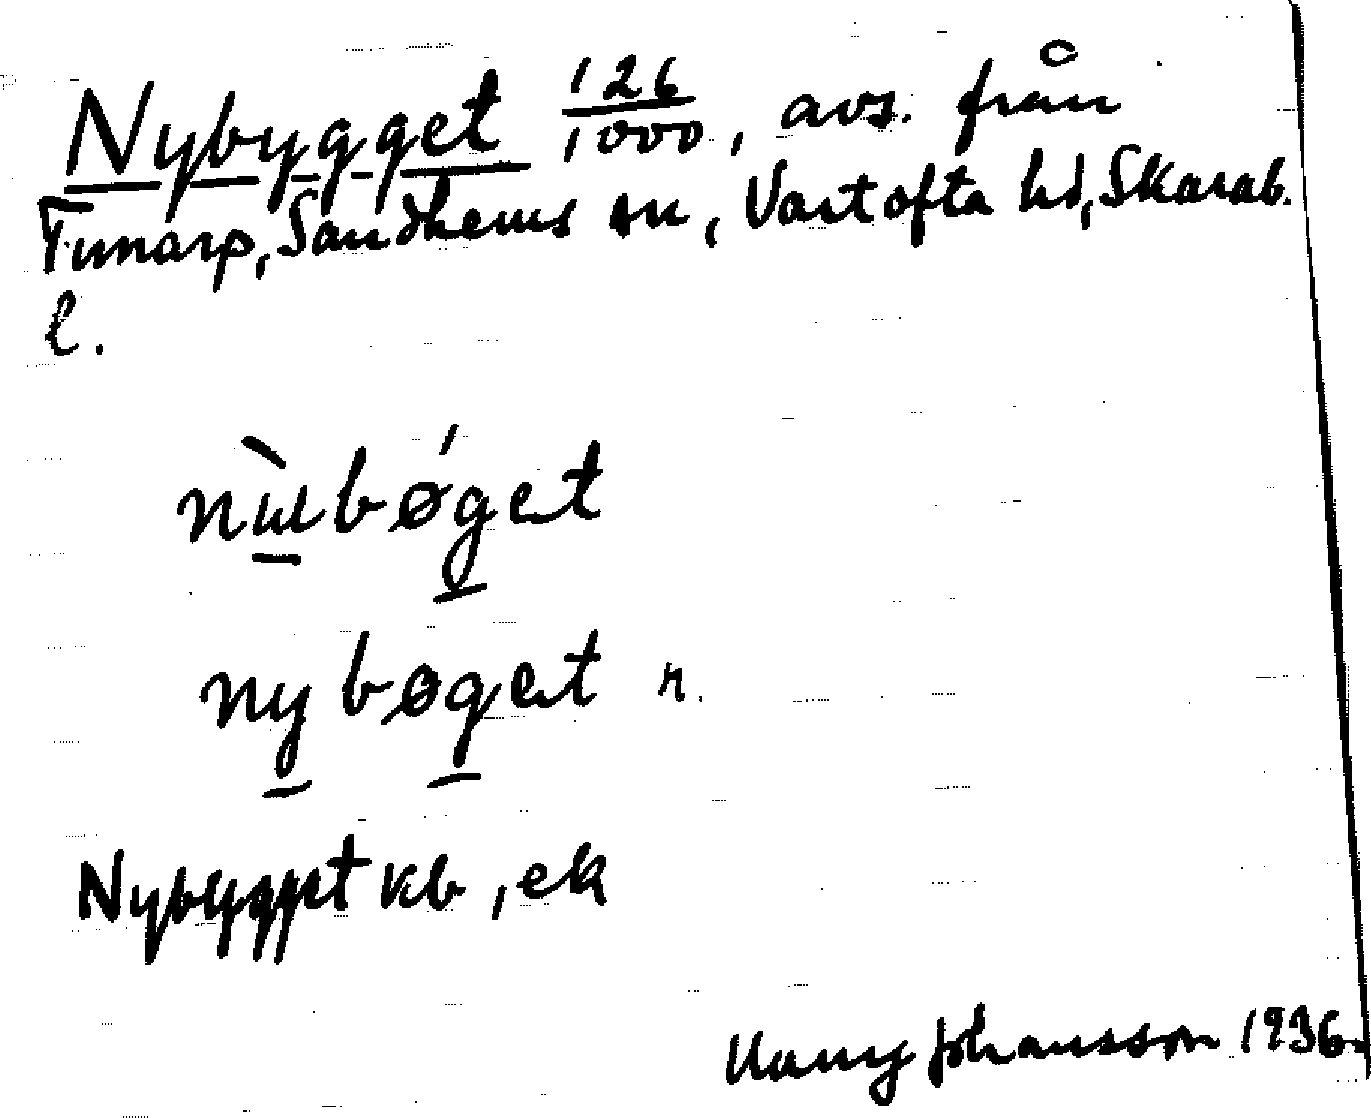 Nybygget 126/1000, avs. från
Timarp, Sandhems sn, Vartofta hd, Skarab.
l.
nùɯbǿget
nybøget n.
Nybygget kb, ek
Harry Johansson 1936.